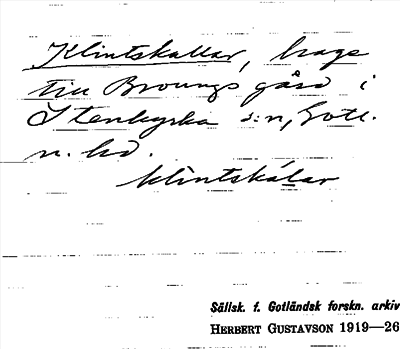 Klintskallar, hage
till Broungs gård i
Stenkyrka s:n, Gotl.
n. hd.
klintskálar
Sällsk. f. Gotländsk forskn. arkiv
HERBERT GUSTAVSON 1919—26